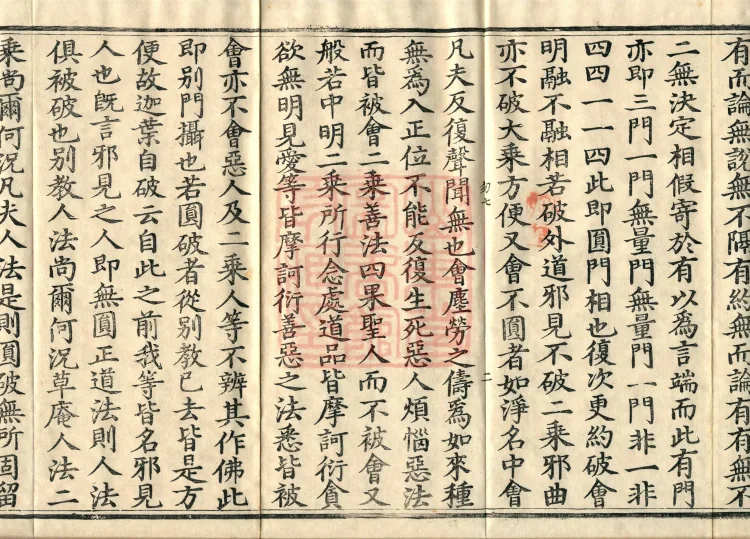 有而論無說無不隔有約無而論有有無不
二無決定相假寄於有以為言端而此有門
亦即三門一門無量門無量門一門非一非
四四一一四此即圓門相也復次更約破會
明融不融相若破外道邪見不破二乘邪曲
亦不破大乘方便又會不圓者如淨名中會
勿七 二
凡夫反復聲聞無也會塵勞之儔為如來種
無為入正位不能反復生死惡人煩惱惡法
而皆被會二乘善法四果聖人而不被會又
般若中明二乘所行念處道品皆摩訶衍貪
欲無明見愛等皆摩訶衍善惡之法悉皆被
會亦不會惡人及二乘人等不辨其作佛此
即別門攝也若圓破者從別教已去皆是方
便故迦葉自破云自此之前我等皆名邪見
人也既言邪見之人即無圓正道法則人法
俱被破也別教人法尚爾何況草庵人法二
乘尚爾何況凡夫人法是則圓破無所固留